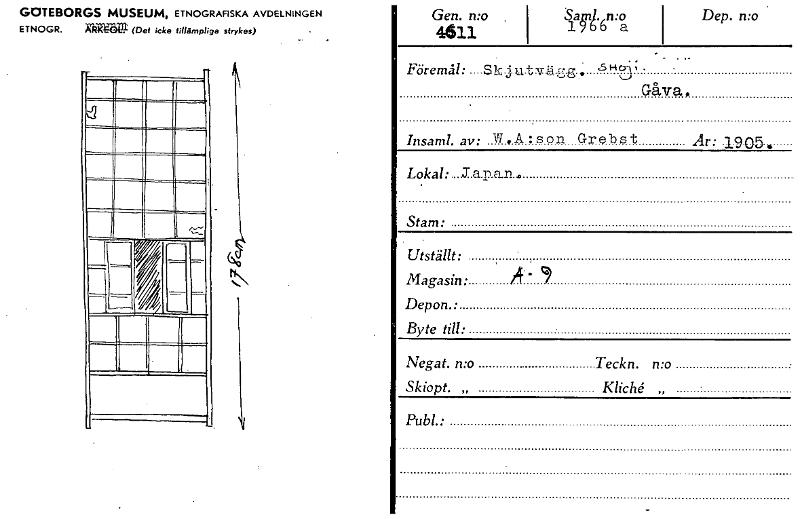 GÖTEBORGS MUSEUM, ETNOGRAFISKA AVDELNINGEN
ETNOGR. ARKEOL. (Det icke tillämplige strykes)
178cm
Gen. n:o Saml. n:o Dep. n:o
4611 1966 a
Föremål: Skjutvägg. SHOJI.
Gåva.
Insaml. av: W.A:son Grebst År: 1905.
Lokal: Japan.
Stam:
Utställt:
Magasin: A-9
Depon.:
Byte till:
Negat. n:o Teckn. n:o
Skiopt. „ Kliché „
Publ.: